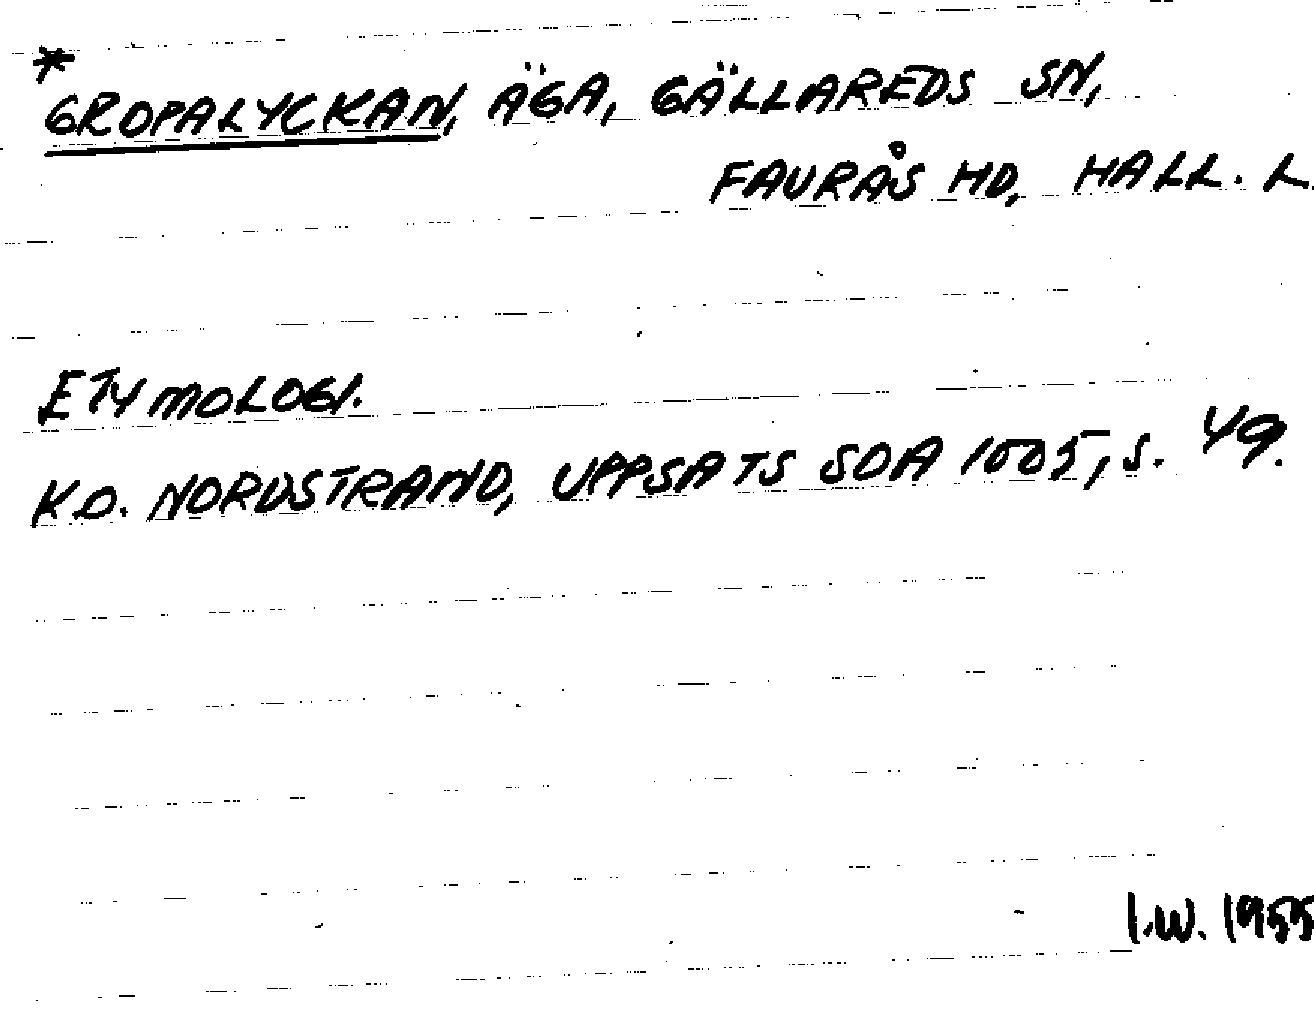 *
GROPALYCKAN, ÄGA, GÄLLAREDS SN,
FAURÅS HD, HALL. L.
ETYMOLOGI.
K.O. NORDSTRAND, UPPSATS SOA 1005, S. 49.
I.W. 1955